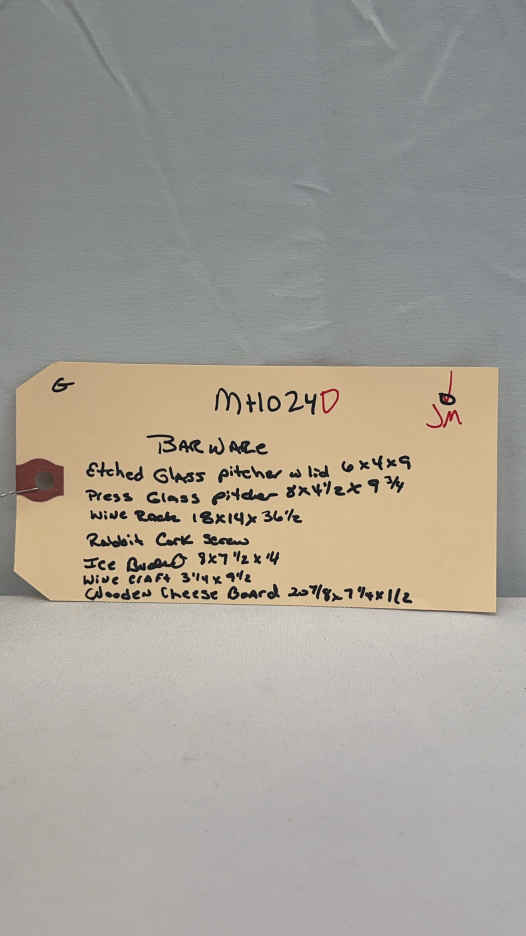 G
MH1024D
JM
BARWARE
Etched Glass pitcher w lid 6x4x9
Press Glass pitcher 8x4 1/2 x 9 3/4
Wine Rack 18x14x36 1/2
Rabbit Cork Screw
Ice Bucket 8x7 1/2 x
Wine craft 3 1/4 x 9 1/2
Wooden Cheese Board 20 7/8 x 7 1/4 x 1/2